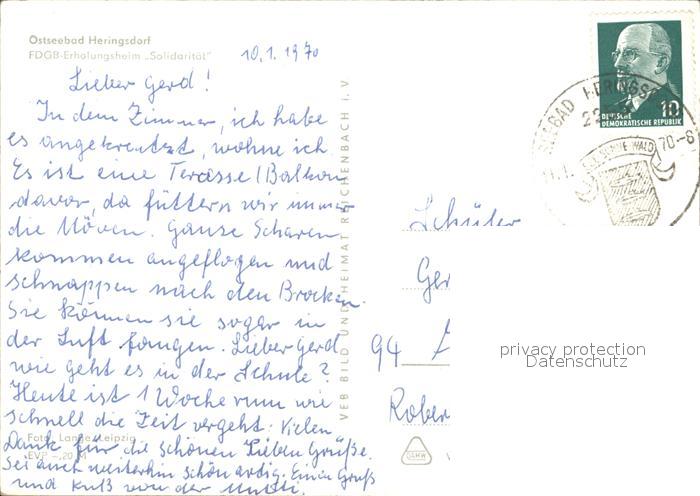 Ostseebad Heringsdorf
FDGB-Erholungsheim „Solidarität"
10.1.1970
Lieber Gerd!
In dem Zimmer, ich habe
es angekreutzt, wohne ich.
Es ist eine Terasse (Balkon
davor, da füttern wir immer
die Möven. Ganze Scharen
kommen angeflogen und
schnappen nach den Brocken.
Sie können sie sogar in
der Luft fangen. Lieber Gerd
wie geht es in der Schule?
Heute ist 1 Woche rum wie
schnell die Zeit vergeht. Vielen
Dank für die schönen lieben Grüße.
Sei auch weiterhin schön artig. Einen Gruß
und Kuß von der Mutti.
Foto: Lange, Leipzig
EVP –,20 M
VEB BILD UND HEIMAT REICHENBACH I. V.
10
DEUTSCHE
DEMOKRATISCHE REPUBLIK
SEEBAD HERINGSD
70-8
Schüler
Ger
94
Rober
privacy protection
Datenschutz